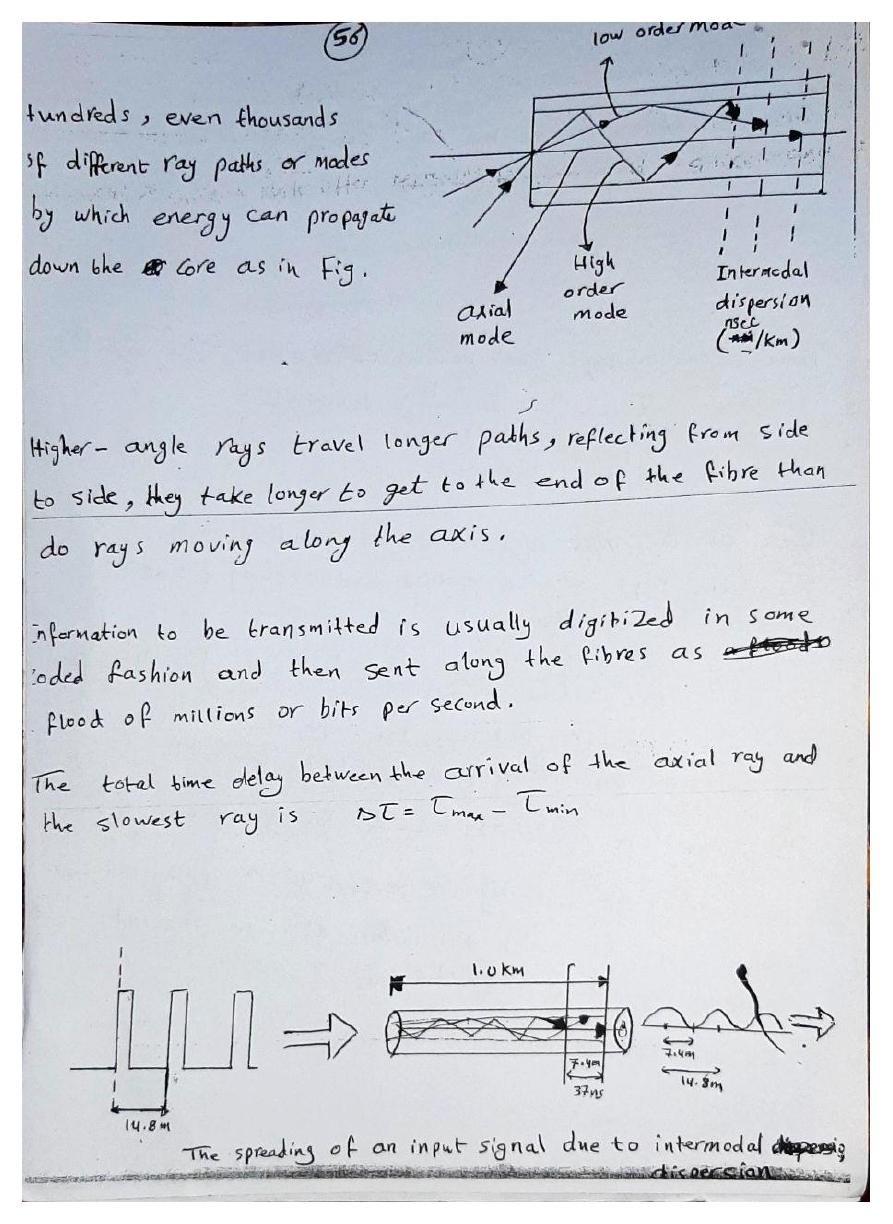 56
low order mod
hundreds, even thousands
of different ray paths or modes
by which energy can propagate
down the core as in Fig.
axial
mode
High
order
mode
Intermodal
dispersion
nsec
( /km)
Higher- angle rays travel longer paths, reflecting from side
to side, they take longer to get to the end of the fibre than
do rays moving along the axis.
information to be transmitted is usually digitized in some
coded fashion and then sent along the fibres as
flood of millions or bits per second.
The total time delay between the arrival of the axial ray and
the slowest ray is Δτ = τmax - τmin
1.0 km
14.8 m
7.4m
37ns
7.4m
14.8m
The spreading of an input signal due to intermodal
dispersion